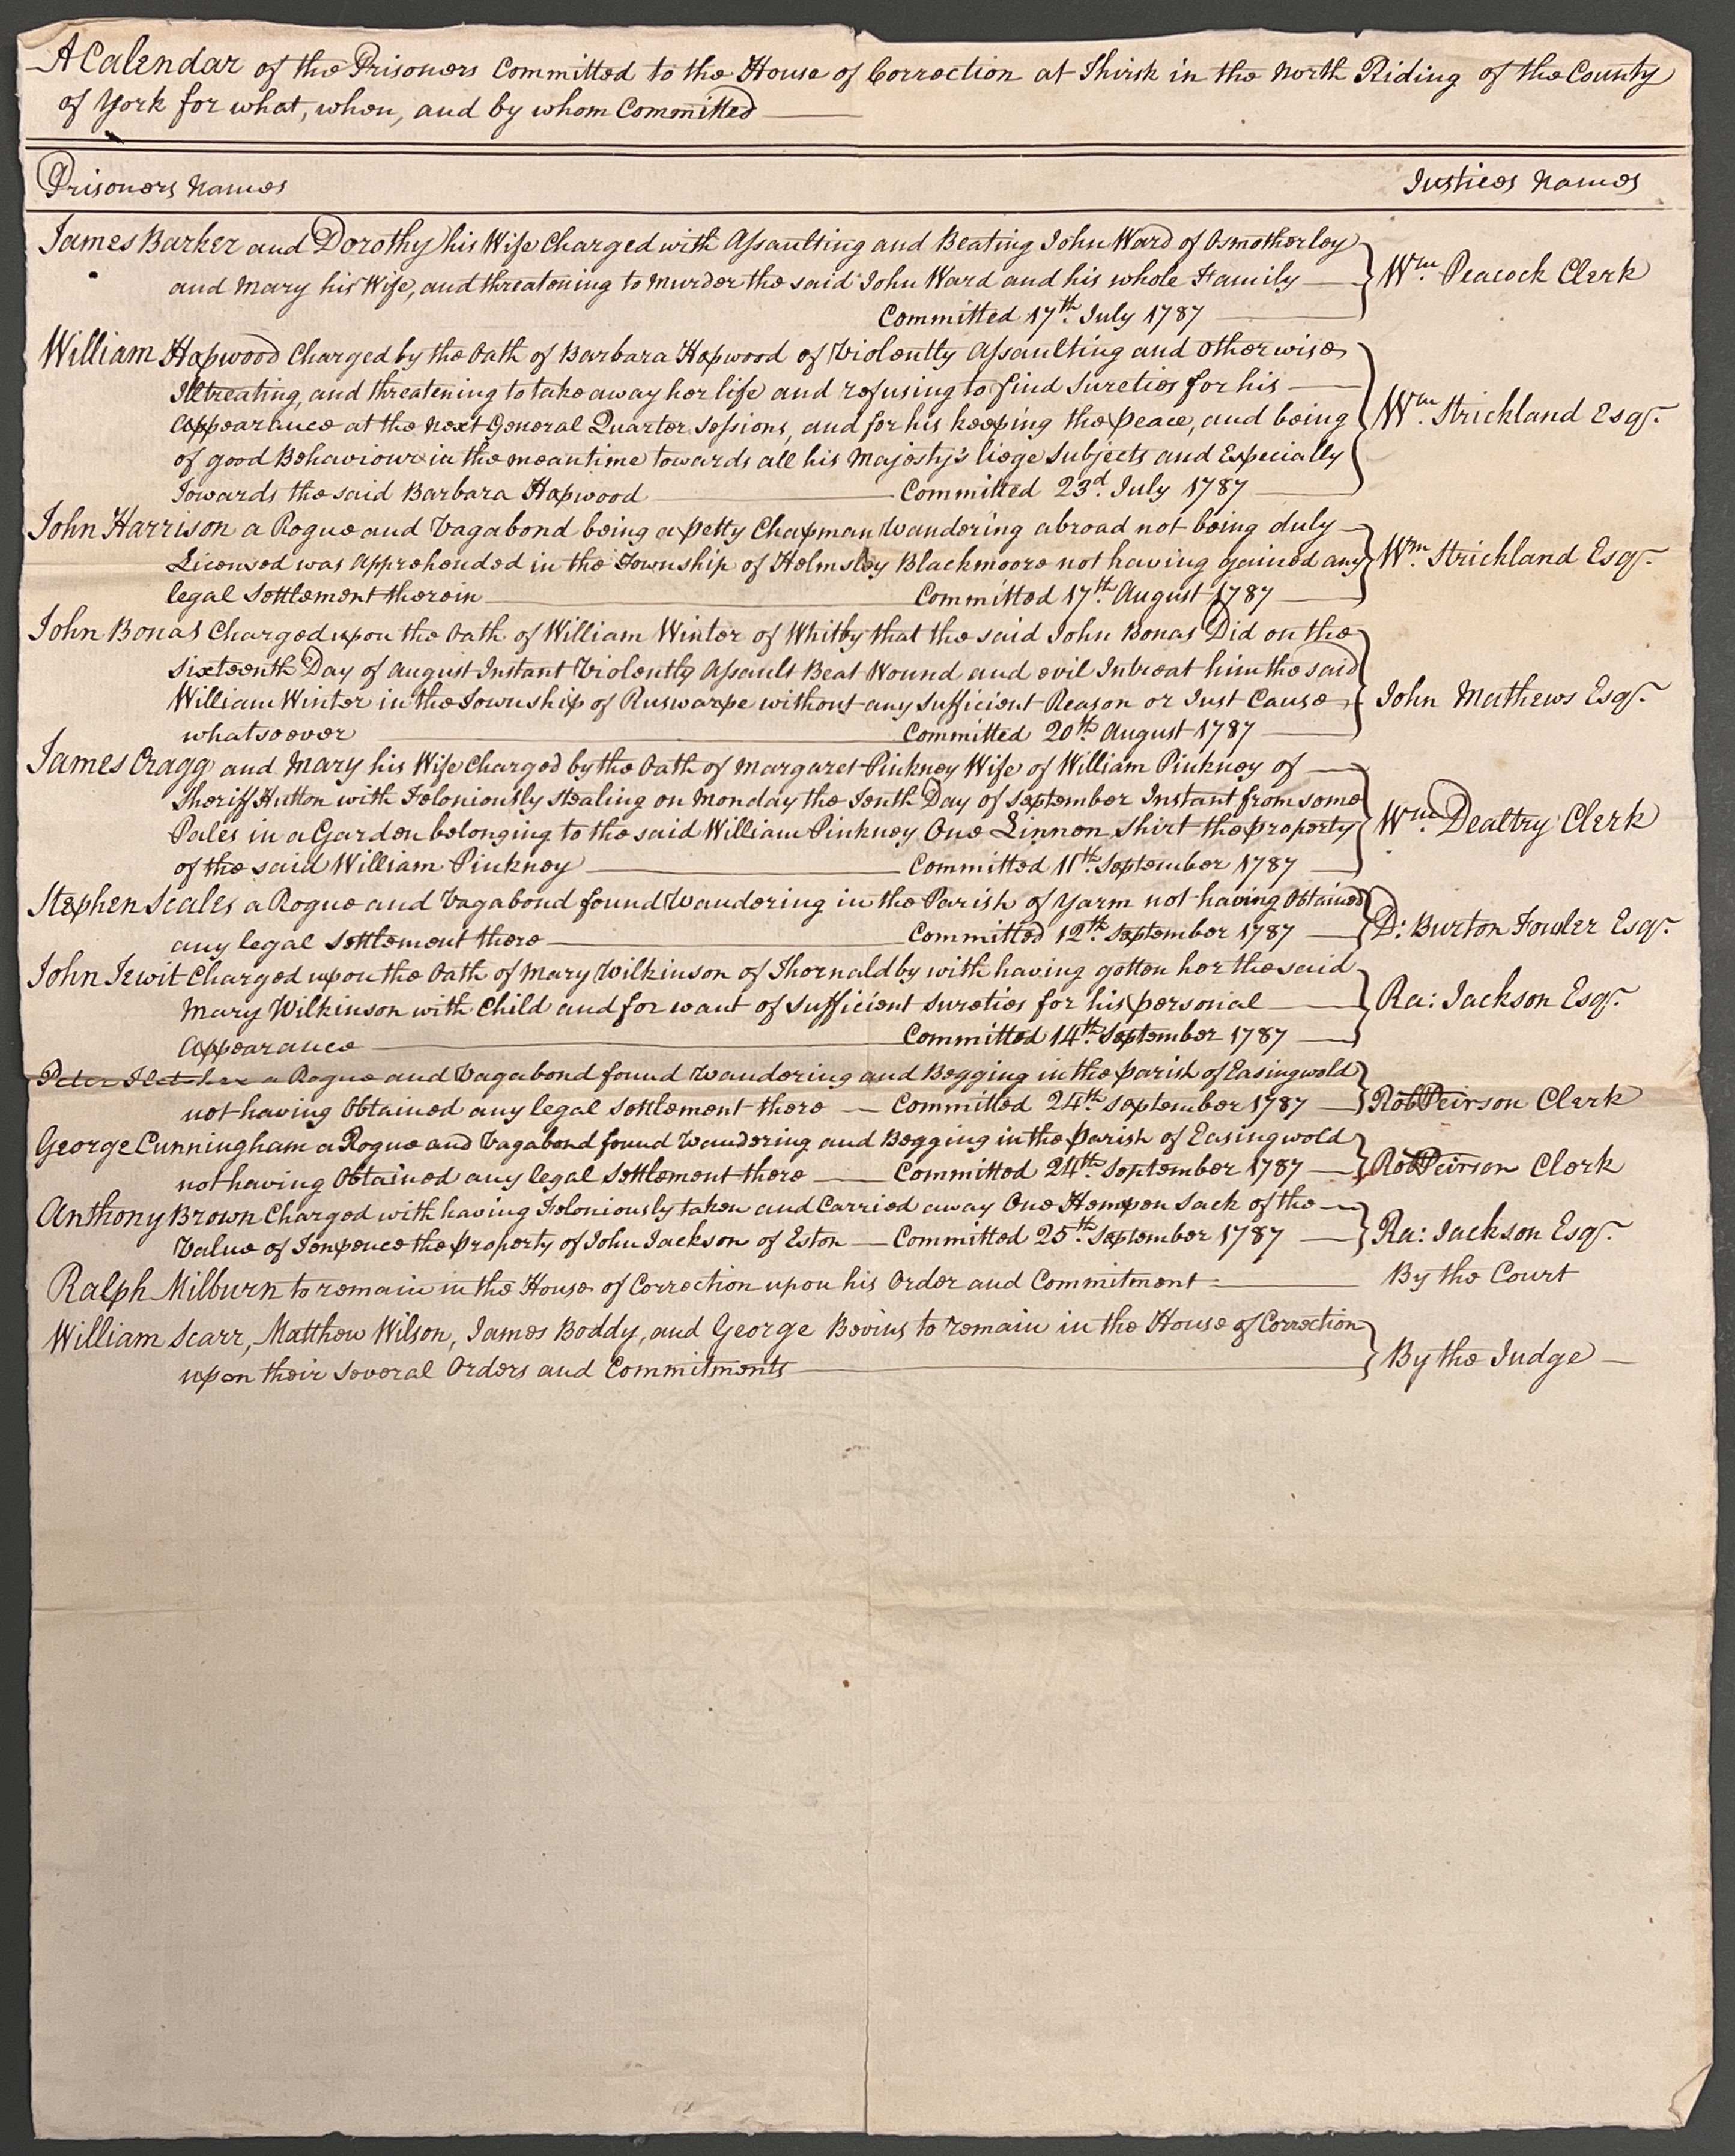 A Calendar of the Prisoners Committed to the House of Correction at Thirsk in the North Riding of the County
of York for what, when, and by whom Committed
Prisoners Names Justices Names
James Barker and Dorothy his Wife Charged with Assaulting and Beating John Ward of Osmotherley
and Mary his Wife, and threatening to Murder the said John Ward and his whole Family
Wm. Peacock Clerk
Committed 17th. July 1787
William Hopwood Charged by the Oath of Barbara Hopwood of Violently Assaulting and otherwise
Illtreating, and threatening to take away her life and refusing to find Sureties for his
Appearance at the next General Quarter Sessions, and for his keeping the peace, and being
Wm. Strickland Esqr.
of good Behaviour in the meantime towards all his Majesty's liege Subjects and Especially
Towards the said Barbara Hopwood Committed 23d. July 1787
John Harrison a Rogue and Vagabond being a petty Chapman Wandering abroad not being duly
Licensed was Apprehended in the Township of Helmsley Blackmoore not having gained any
Wm. Strickland Esqr.
legal Settlement therein Committed 17th. August 1787
John Bonas Charged upon the Oath of William Winter of Whitby that the said John Bonas Did on the
Sixteenth Day of August Instant Violently Assault Beat Wound and evil Intreat him the said
William Winter in the Township of Ruswarpe without any Sufficient Reason or Just Cause
John Mathews Esqr.
whatsoever Committed 20th. August 1787
James Cragg and Mary his Wife Charged by the Oath of Margaret Pinkney Wife of William Pinkney of
Sheriff Hutton with Feloniously Stealing on Monday the Tenth Day of September Instant from some
Pales in a Garden belonging to the said William Pinkney One Linnen Shirt the property
Wm. Dealtry Clerk
of the said William Pinkney Committed 11th. September 1787
Stephen Scales a Rogue and Vagabond found Wandering in the Parish of Yarm not having Obtained
any legal Settlement there Committed 12th. September 1787
D: Burton Fowler Esqr.
John Jewit Charged upon the Oath of Mary Wilkinson of Thornaldby with having gotten her the said
Mary Wilkinson with Child and for want of Sufficient Sureties for his personal
Ra: Jackson Esqr.
Appearance Committed 14th. September 1787
Peter Fletcher a Rogue and Vagabond found Wandering and Begging in the parish of Easingwold
not having Obtained any legal Settlement there Committed 24th. September 1787
Rob Peirson Clerk
George Cunningham a Rogue and Vagabond found Wandering and Begging in the parish of Easingwold
not having Obtained any legal Settlement there Committed 24th. September 1787
Rob Peirson Clerk
Anthony Brown Charged with having Feloniously taken and Carried away One Hempen Sack of the
Value of Tenpence the property of John Jackson of Eston Committed 25th. September 1787
Ra: Jackson Esqr.
Ralph Milburn to remain in the House of Correction upon his Order and Commitment By the Court
William Scarr, Matthew Wilson, James Boddy, and George Bovins to remain in the House of Correction
upon their Several Orders and Commitments By the Judge